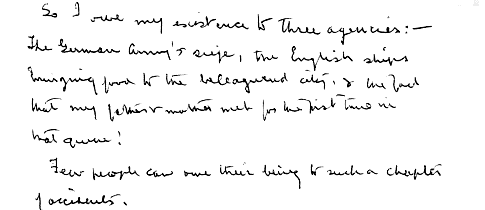 So I owe my existence to three agencies:—
The German Army's siege, the English ships
bringing food to the beleaguered city, & the fact
that my father & mother met for the first time in
that queue!
Few people can owe their being to such a chapter
of accidents.